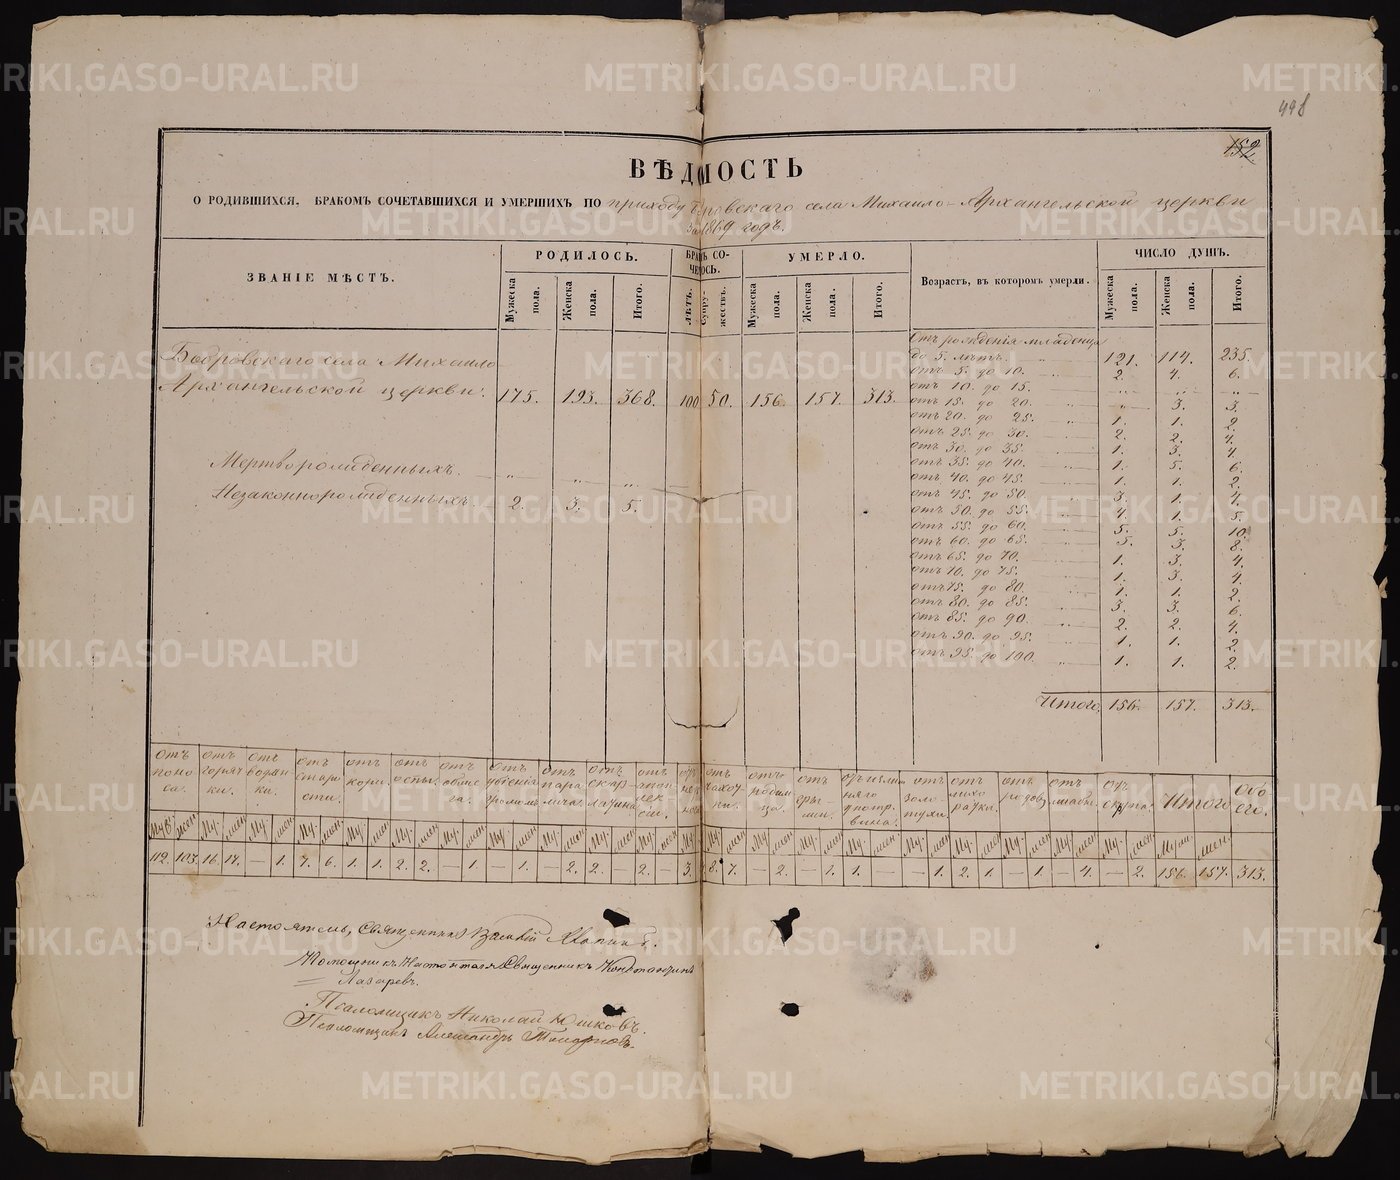 498
152
ВѢДОМОСТЬ
О РОДИВШИХСЯ, БРАКОМЪ СОЧЕТАВШИХСЯ И УМЕРШИХЪ ПО приходу Бобровскаго села Михаило-Архангельской церкви
за 1869 годъ.
ЗВАНІЕ МѢСТЪ. РОДИЛОСЬ. БРАКЪ СО-ЧЕТАЛОСЬ. УМЕРЛО. Возрастъ, въ которомъ умерли. ЧИСЛО ДУШЪ.
Мужеска пола. Женска пола. Итого. ЛѢТЪ. Супружествъ. Мужеска пола. Женска пола. Итого. Мужеска пола. Женска пола. Итого.
Бобровскаго села Михаило-
Архангельской церкви. 175. 193. 368. 100 50. 156. 157. 313.
Мертворожденныхъ. „ „ „
Незаконнорожденныхъ 2. 3. 5.
Отъ рожденія младенца
до 5. лѣтъ. 121. 114. 235.
отъ 5. до 10. 2. 4. 6.
отъ 10. до 15. „ „ „
отъ 15. до 20. „ 3. 3.
отъ 20. до 25. 1. 1. 2.
отъ 25. до 30. 2. 2. 4.
отъ 30. до 35. 1. 3. 4.
отъ 35. до 40. 1. 5. 6.
отъ 40. до 45. 1. 1. 2.
отъ 45. до 50. 3. 1. 4.
отъ 50. до 55. 4. 1. 5.
отъ 55. до 60. 5. 5. 10.
отъ 60. до 65. 5. 3. 8.
отъ 65. до 70. 1. 3. 4.
отъ 70. до 75. 1. 3. 4.
отъ 75. до 80. 1. 1. 2.
отъ 80. до 85. 3. 3. 6.
отъ 85. до 90. 2. 2. 4.
отъ 90. до 95. 1. 1. 2.
отъ 95. до 100. 1. 1. 2.
Итого. 156. 157. 313.
отъ поноса. отъ горячки. отъ водянки. отъ старости. отъ кори. отъ оспы. отъ отъ отъ паралича. отъ скарлатины. отъ отъ отъ чахотки. отъ родимца. отъ грыжи. отъ излишняго употр. вина. отъ золотухи. отъ лихорадки. отъ родовъ отъ отъ Итого Обоего.
112. 103. 16. 17. — 1. 7. 6. 1. 1. 2. 2. — 1. — 1. — 2. 2. — 2. — 3. 8. 7. — 2. — 1. 1. — — 1. 2. 1. — 1. — 4. — 2. 156. 157. 313.
Настоятель, Священникъ
Помощникъ Настоятеля Священникъ Константинъ
Лазаревъ.
Псаломщикъ Николай Юшковъ.
Псаломщикъ Александръ
METRIKI.GASO-URAL.RU